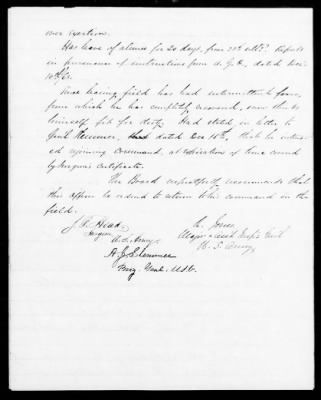 over exertion.
Has leave of absence for 20 days, from 25th ult. Reports
in pursuance of instructions from A.G.O., dated Dec.
10th/63.
Since leaving field has had intermittent fever,
from which he has completely recovered, now thinks
himself fit for duty. Had stated in letter to
Genl. Slemmer, dated Dec 18th, that he intend-
ed rejoining command, at expiration of time covered
by Surgeon's certificate.
The Board respectfully recommends that
this officer be ordered to return to his command in the
field.
J. F. Head
Surgeon
U.S. Army
A. J. Slemmer
Brig. Genl. U.S.V.
R. Jones
Major & Asst. Insp. Genl.
U. S. Army